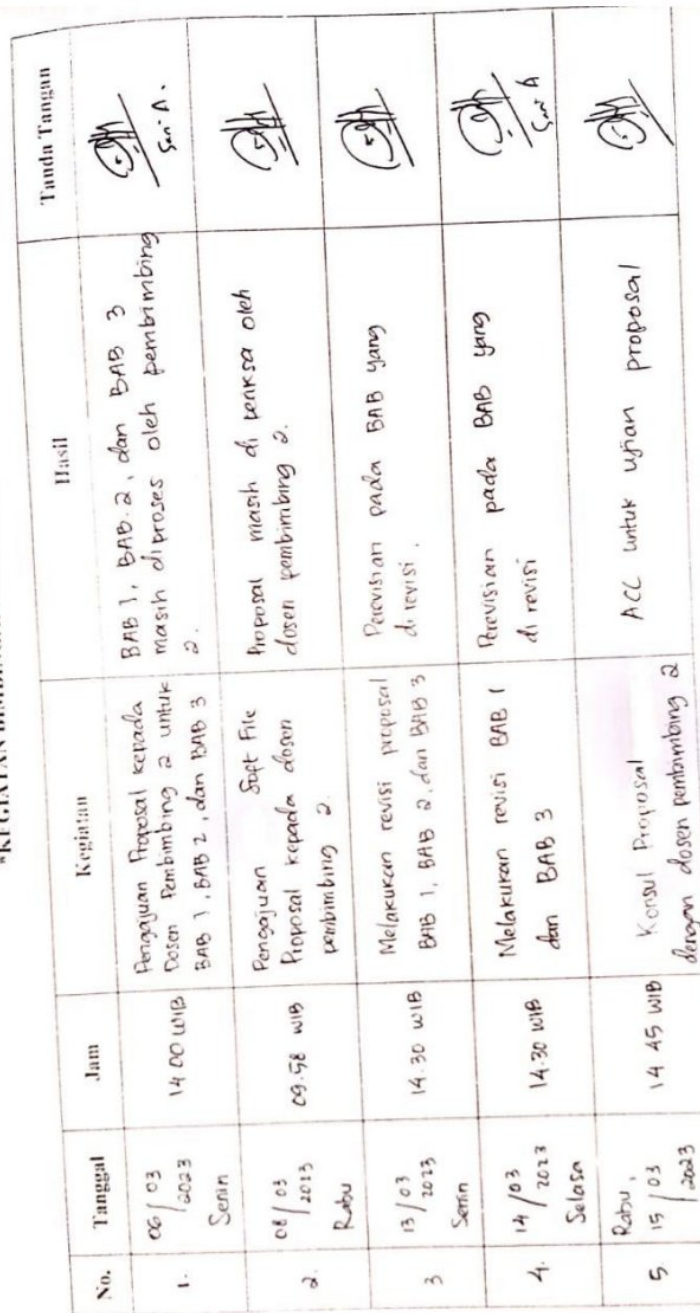 No.
Tanggal
Jam
Kegiatan
Hasil
Tanda Tangan
1.
06/03
2023
Senin
14 00 WIB
Pengajuan Proposal kepada
Dosen Pembimbing 2 untuk
BAB 1, BAB 2, dan BAB 3
BAB 1, BAB. 2, dan BAB 3
masih diproses oleh pembimbing
2.
2.
08/03
2013
Rabu
09.58 WIB
Pengajuan Soft File
Proposal kepada dosen
pembimbing 2.
Proposal masih di periksa oleh
dosen pembimbing 2.
3
13/03
2023
Senin
14.30 WIB
Melakukan revisi proposal
BAB 1, BAB 2, dan BAB 3
Perevisian pada BAB yang
di revisi.
4.
14/03
2023
Selasa
14.30 WIB
Melakukan revisi BAB 1
dan BAB 3
Perevisian pada BAB yang
di revisi
5.
Rabu,
15/03
2023
14 45 WIB
Konsul Proposal
dengan dosen pembimbing 2
ACC untuk ujian proposal